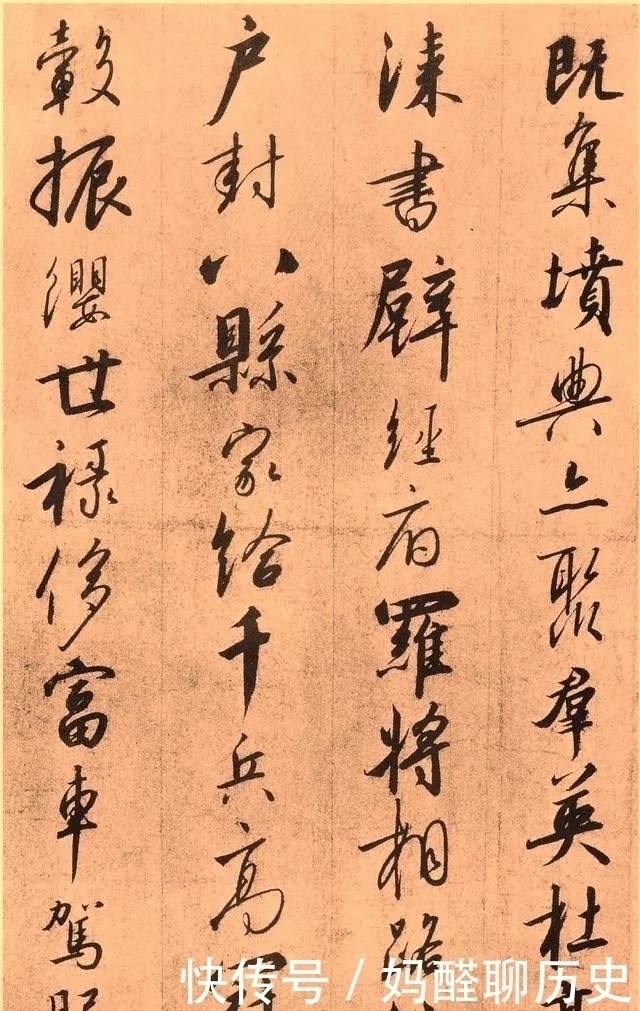 既集墳典亦聚羣英杜
漆書壁經府羅將相路
户封八縣家給千兵高
轂振纓世禄侈富車駕
快传号 / 妈醛聊历史